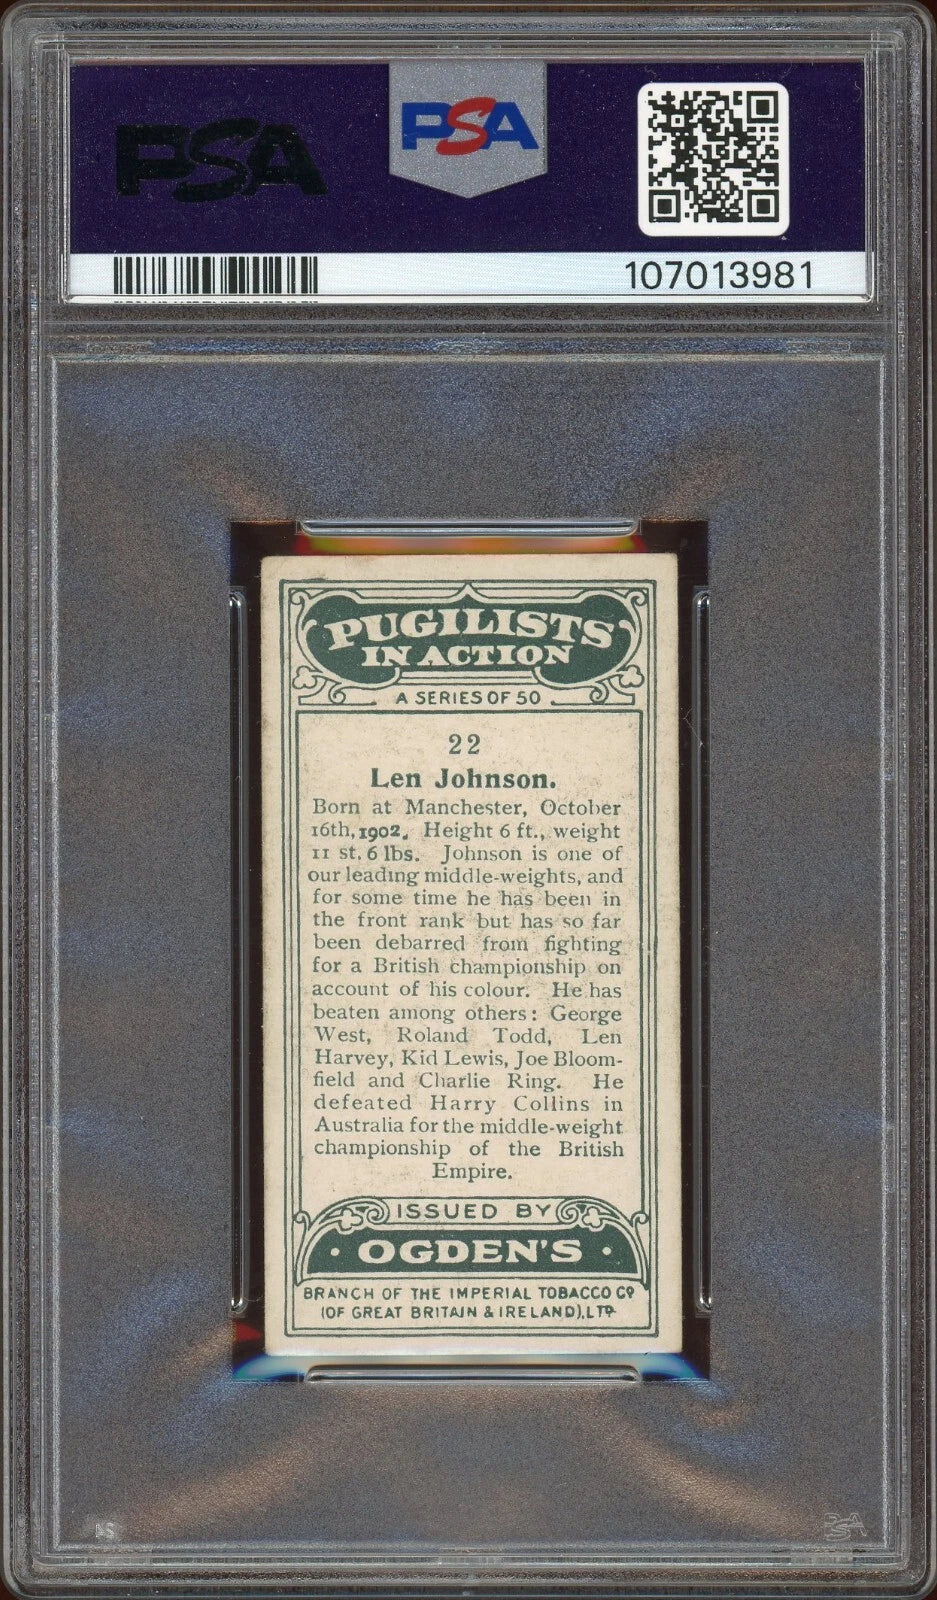 PSA
PSA
107013981
PUGILISTS
IN ACTION
A SERIES OF 50
22
Len Johnson.
Born at Manchester, October
16th, 1902. Height 6 ft., weight
11 st. 6 lbs. Johnson is one of
our leading middle-weights, and
for some time he has been in
the front rank but has so far
been debarred from fighting
for a British championship on
account of his colour. He has
beaten among others: George
West, Roland Todd, Len
Harvey, Kid Lewis, Joe Bloom-
field and Charlie Ring. He
defeated Harry Collins in
Australia for the middle-weight
championship of the British
Empire.
ISSUED BY
· OGDEN'S ·
BRANCH OF THE IMPERIAL TOBACCO CO
(OF GREAT BRITAIN & IRELAND), LTD.
PSA